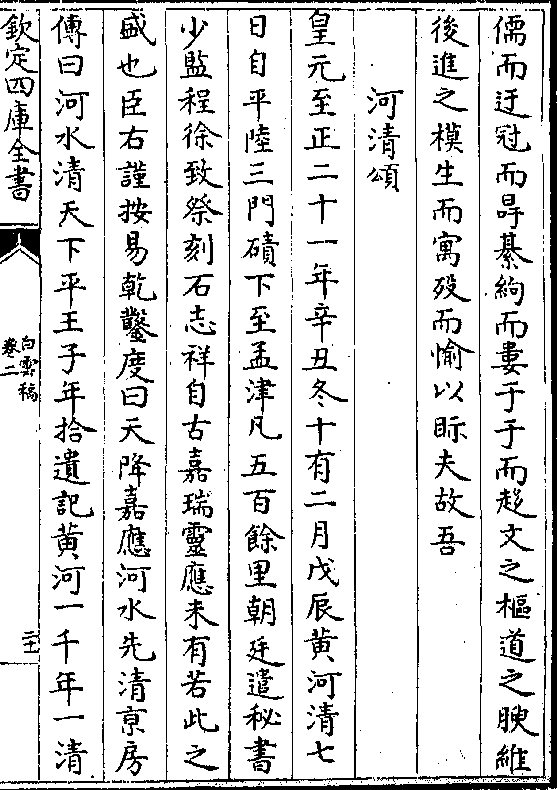 儒而迂冠而冔綦絇而婁于于而趍文之樞道之腴維
後進之模生而寓殁而愉以眎夫故吾
河清頌
皇元至正二十一年辛丑冬十有二月戊辰黄河清七
日自平陸三門磧下至孟津凡五百餘里朝廷遣秘書
少監程徐致祭刻石志祥自古嘉瑞靈應未有若此之
盛也臣右謹按易乾鑿度曰天降嘉應河水先清京房
傳曰河水清天下平王子年拾遺記黄河一千年一清
欽定四庫全書
白雲稿
卷二
二十一